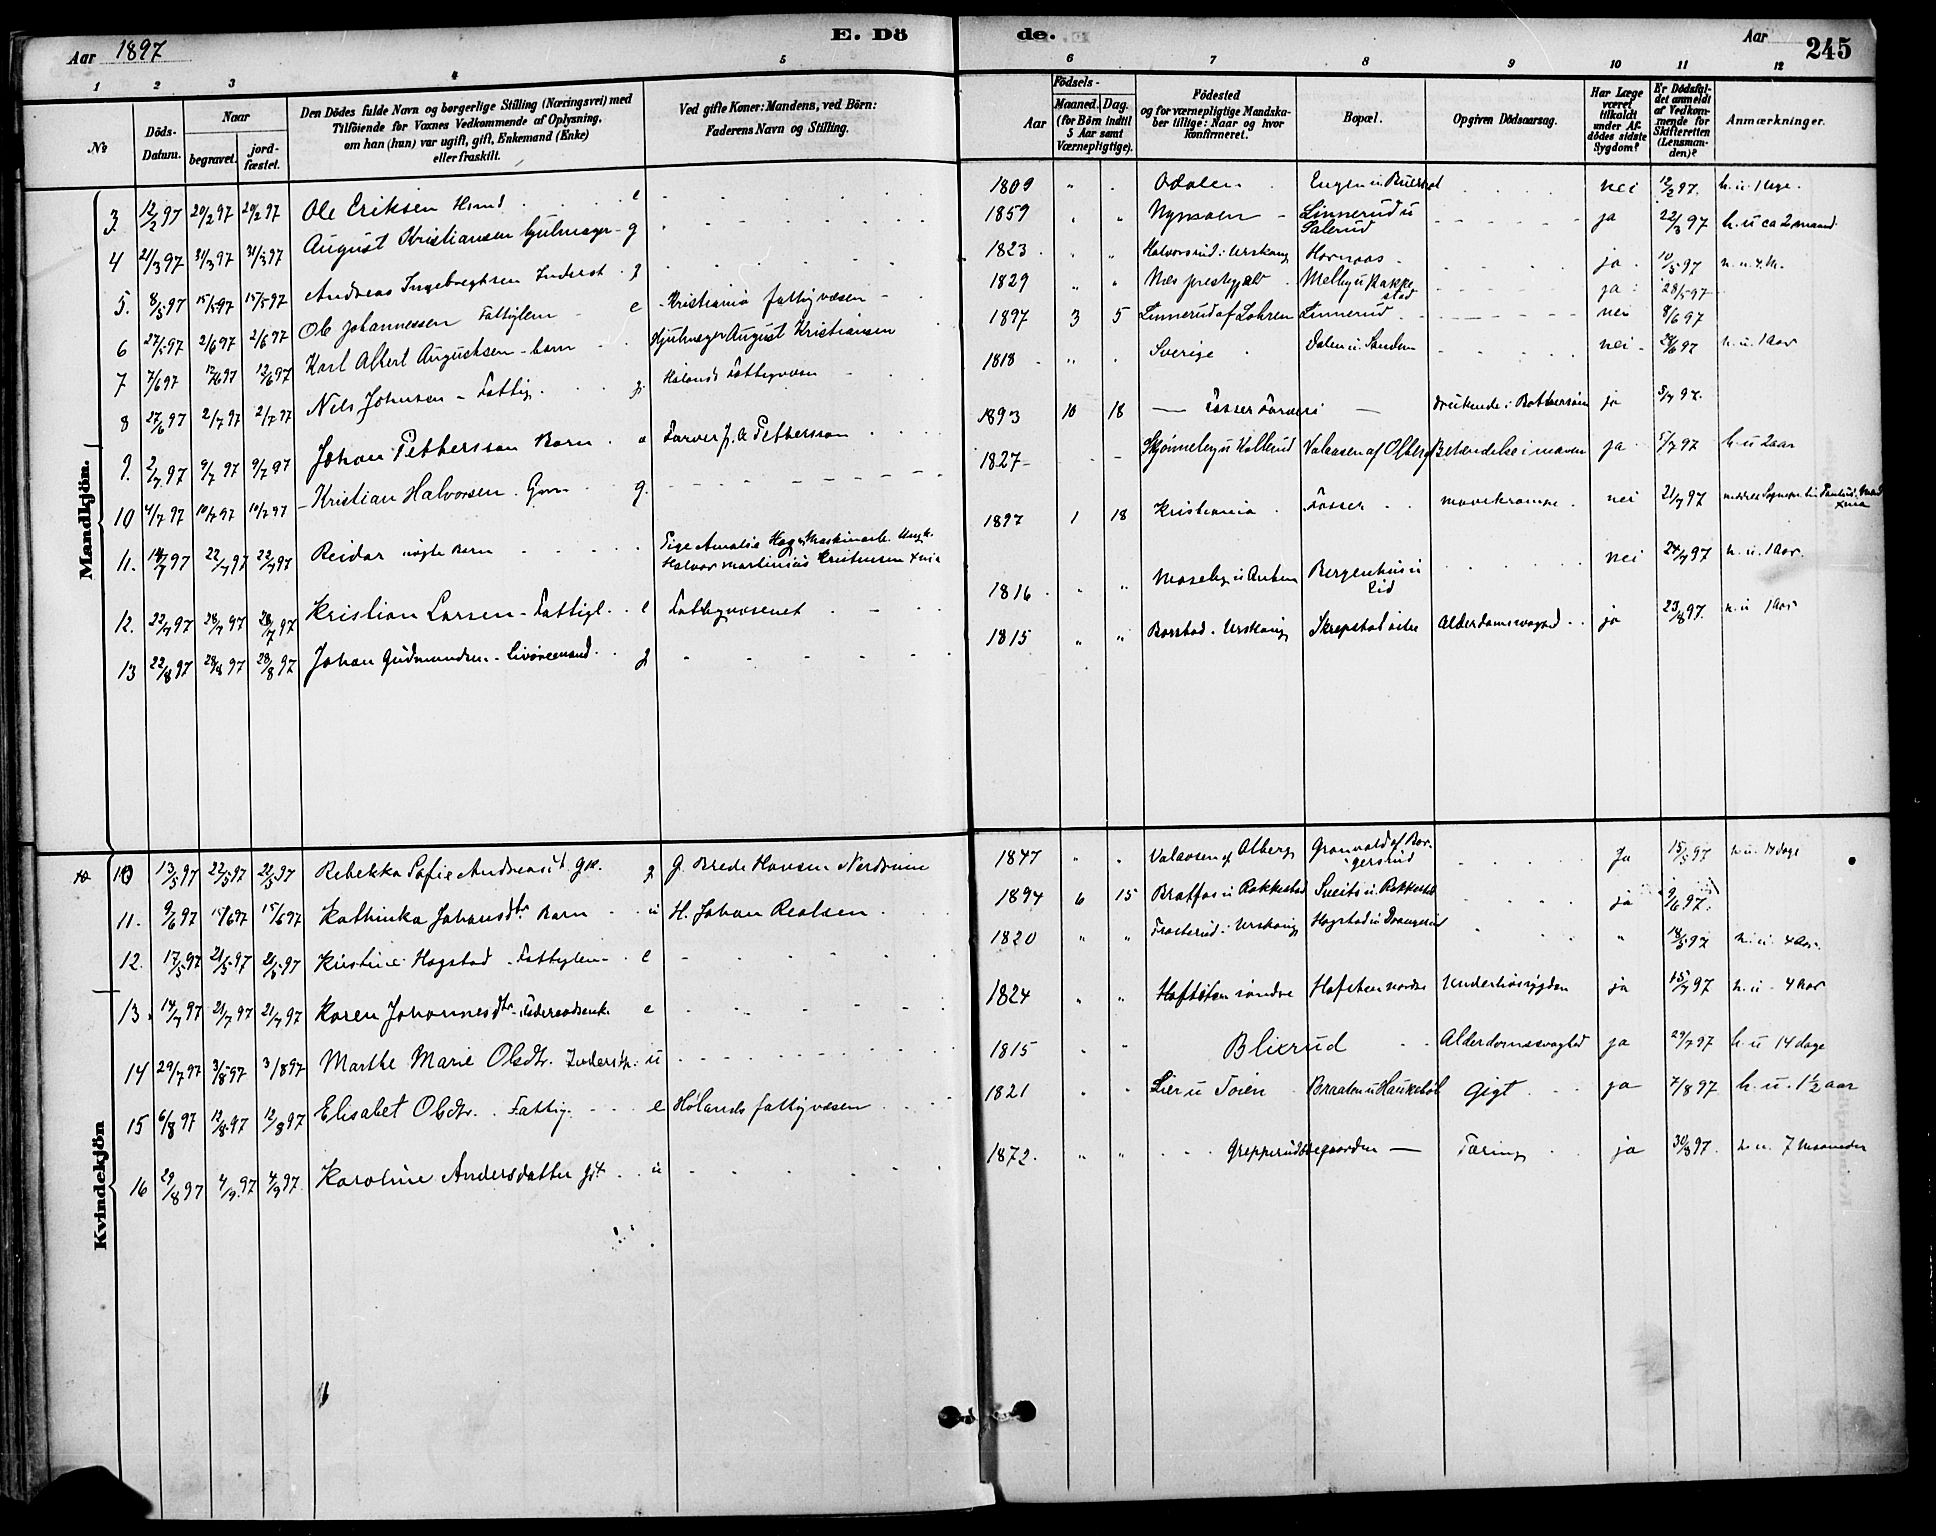 Aar 1897 E. Dö de. Aar 245
1 2 3 4 5 6 7 8 9 10 11 12
№ Döds-Datum. Naar begravet. jord-fæstet. Den Dödes fulde Navn og borgerlige Stilling (Næringsvei) med Tilföiende for Voxnes Vedkommende af Oplysning, om han (hun) var ugift, gift, Enkemand (Enke) eller fraskilt. Ved gifte Koner: Mandens, ved Börn: Faderens Navn og Stilling. Födsels- Aar Maaned. Dag. (for Börn indtil 5 Aar samt Værnepligtige). Födested og for værnepligtige Mandskaber tillige: Naar og hvor Konfirmeret. Bopæl. Opgiven Dödsaarsag. Har Læge været tilkaldt under Afdödes sidste Sygdom? Er Dödsfaldet anmeldt af Vedkommende for Skifteretten (Lensmanden)? Anmærkninger.
Mandkjön.
3. 12/2 97 20/2 97 20/2 97 Ole Eriksen e 1809 " Odalen nei 12/2 97. h. u. 1 uge.
4 21/3 97 31/3 97 31/3 97 August Kristiansen hjulmager g 1859 " " Linnerud u Salerud ja 22/3 97 h. u ca 2 maand
5. 8/5 97 15/5 97 15/5 97 Andreas Ingebregtsen Inderst g 1823 " " Halvorsrud i Urskoug Hornaas ja 10/5 97
6 27/5 97 2/6 97 2/6 97 Ole Johannessen Fattiglem e Kristiania fattigvæsen 1829 " " Næs prestegjeld Melby u Rakkestad ja 28/5 97
7 7/6 97 12/6 97 12/6 97 Karl Albert Augustsen barn Hjulmager August Kristiansen 1897 3 5 Linnerud af Lohren Linnerud nei 8/6 97
8 27/6 97 2/7 97 2/7 97 Nils Johnsen - Fattig. g. Hølands Fattigvæsen 1818 " " Sverige Dalen u. Sanden nei 28/6 97 h. u. 1 Aar
9. 2/7 97 9/7 97 9/7 97 Johan Pettersson Barn Farver J. A Pettersson 1893 10 18 Fosser ja 3/7 97.
10 4/7 97 10/7 97 10/7 97 Kristian Halvorsen. g. 1827 - - Skjønneby u Kollerud Valaasen af Olberg Betændelse i maven ja 5/7 97 h. u 2 aar
11. 14/7 97 22/7 97 22/7 97 Reidar uægte Barn Pige Amalie Hage Maskinarb. Ungk. Halvor Martinius Kristensen Xnia 1897 1 18 Kristiania Fosser mavekrampe nei 21/7 97
12. 22/7 97 28/7 97 28/7 97 Kristian Larsen - Fattigl. e Fattigvæsenet 1816 " " Bergenhus u Lid nei 24/7 97 h. u. 1 Aar.
13 22/8 97 28/8 97 28/8 97 Johan Gudmundsen - Livøremand g 1815 " " Borstad i Urskoug Skrepstad østre Alderdomssvaghed ja 23/8 97. h. u 1 Aar
Kvindekjön
10 10 13/5 97 22/5 97 22/5 97 Rebekka Sofie g G. Brede Hansen Nerdrum 1847 " " Valaasen af Olberg Grønvold af Borgersrud Ja 15/5 97 h. u. 14 dage
11. 9/6 97 15/6 97 15/6 97 Kathinka Johansdtr Barn u H. Johan Realsen 1894 6 15 Bratfos u Rakkestad Sveits u. Rakkestad ja 9/6 97.
12. 17/5 97 21/5 97 21/5 97 Kristine Hogstad - Fattiglem e 1820 " " i Urskoug Hogstad u Drangsrud " 18/5 97 h. u. 4 Aar
13. 14/7 97 21/7 97 21/7 97 Karen Johannesdtr - Føderaadsenk. e 1824 " " Hofsten søndre Hofsten nordre ja 15/7 97 h. u - 4 Aar
14 29/7 97 3/8 97 3/8 97 Marthe Marie Olsdtr. Inderste. u 1815 " " Blixrud Alderdomssvaghed ja 29/7 97 h. u 14 dage
15 6/8 97 12/8 97 12/8 97 Elisabet Olsdtr. Fattig. e Hølands fattigvæsen 1821 " " Lier u Toien Braaten u Haukebøl Gigt ja 7/8 97 h. u. 1½ aar
16 29/8 97 4/9 97 4/9 97 Karoline Andersdatter u 1872. " " Grepperudbøegaarden — Tæring ja 30/8 97. h. u. 7 maaneder